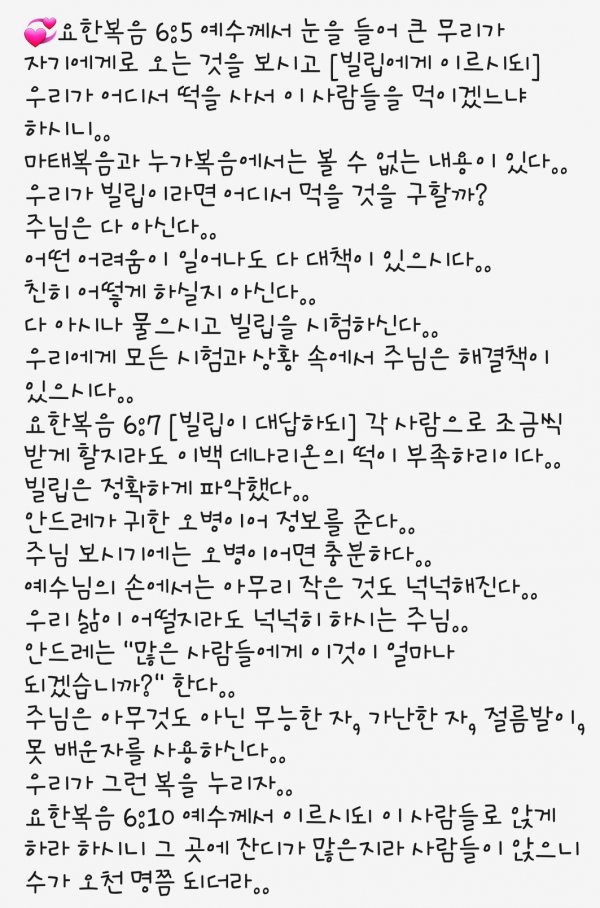 💞요한복음 6:5 예수께서 눈을 들어 큰 무리가
자기에게로 오는 것을 보시고 [빌립에게 이르시되]
우리가 어디서 떡을 사서 이 사람들을 먹이겠느냐
하시니..
마태복음과 누가복음에서는 볼 수 없는 내용이 있다..
우리가 빌립이라면 어디서 먹을 것을 구할까?
주님은 다 아신다..
어떤 어려움이 일어나도 다 대책이 있으시다..
친히 어떻게 하실지 아신다..
다 아시나 물으시고 빌립을 시험하신다..
우리에게 모든 시험과 상황 속에서 주님은 해결책이
있으시다..
요한복음 6:7 [빌립이 대답하되] 각 사람으로 조금씩
받게 할지라도 이백 데나리온의 떡이 부족하리이다..
빌립은 정확하게 파악했다..
안드레가 귀한 오병이어 정보를 준다..
주님 보시기에는 오병이어면 충분하다..
예수님의 손에서는 아무리 작은 것도 넉넉해진다..
우리 삶이 어떨지라도 넉넉히 하시는 주님..
안드레는 "많은 사람들에게 이것이 얼마나
되겠습니까?" 한다..
주님은 아무것도 아닌 무능한 자, 가난한 자, 절름발이,
못 배운자를 사용하신다..
우리가 그런 복을 누리자..
요한복음 6:10 예수께서 이르시되 이 사람들로 앉게
하라 하시니 그 곳에 잔디가 많은지라 사람들이 앉으니
수가 오천 명쯤 되더라..